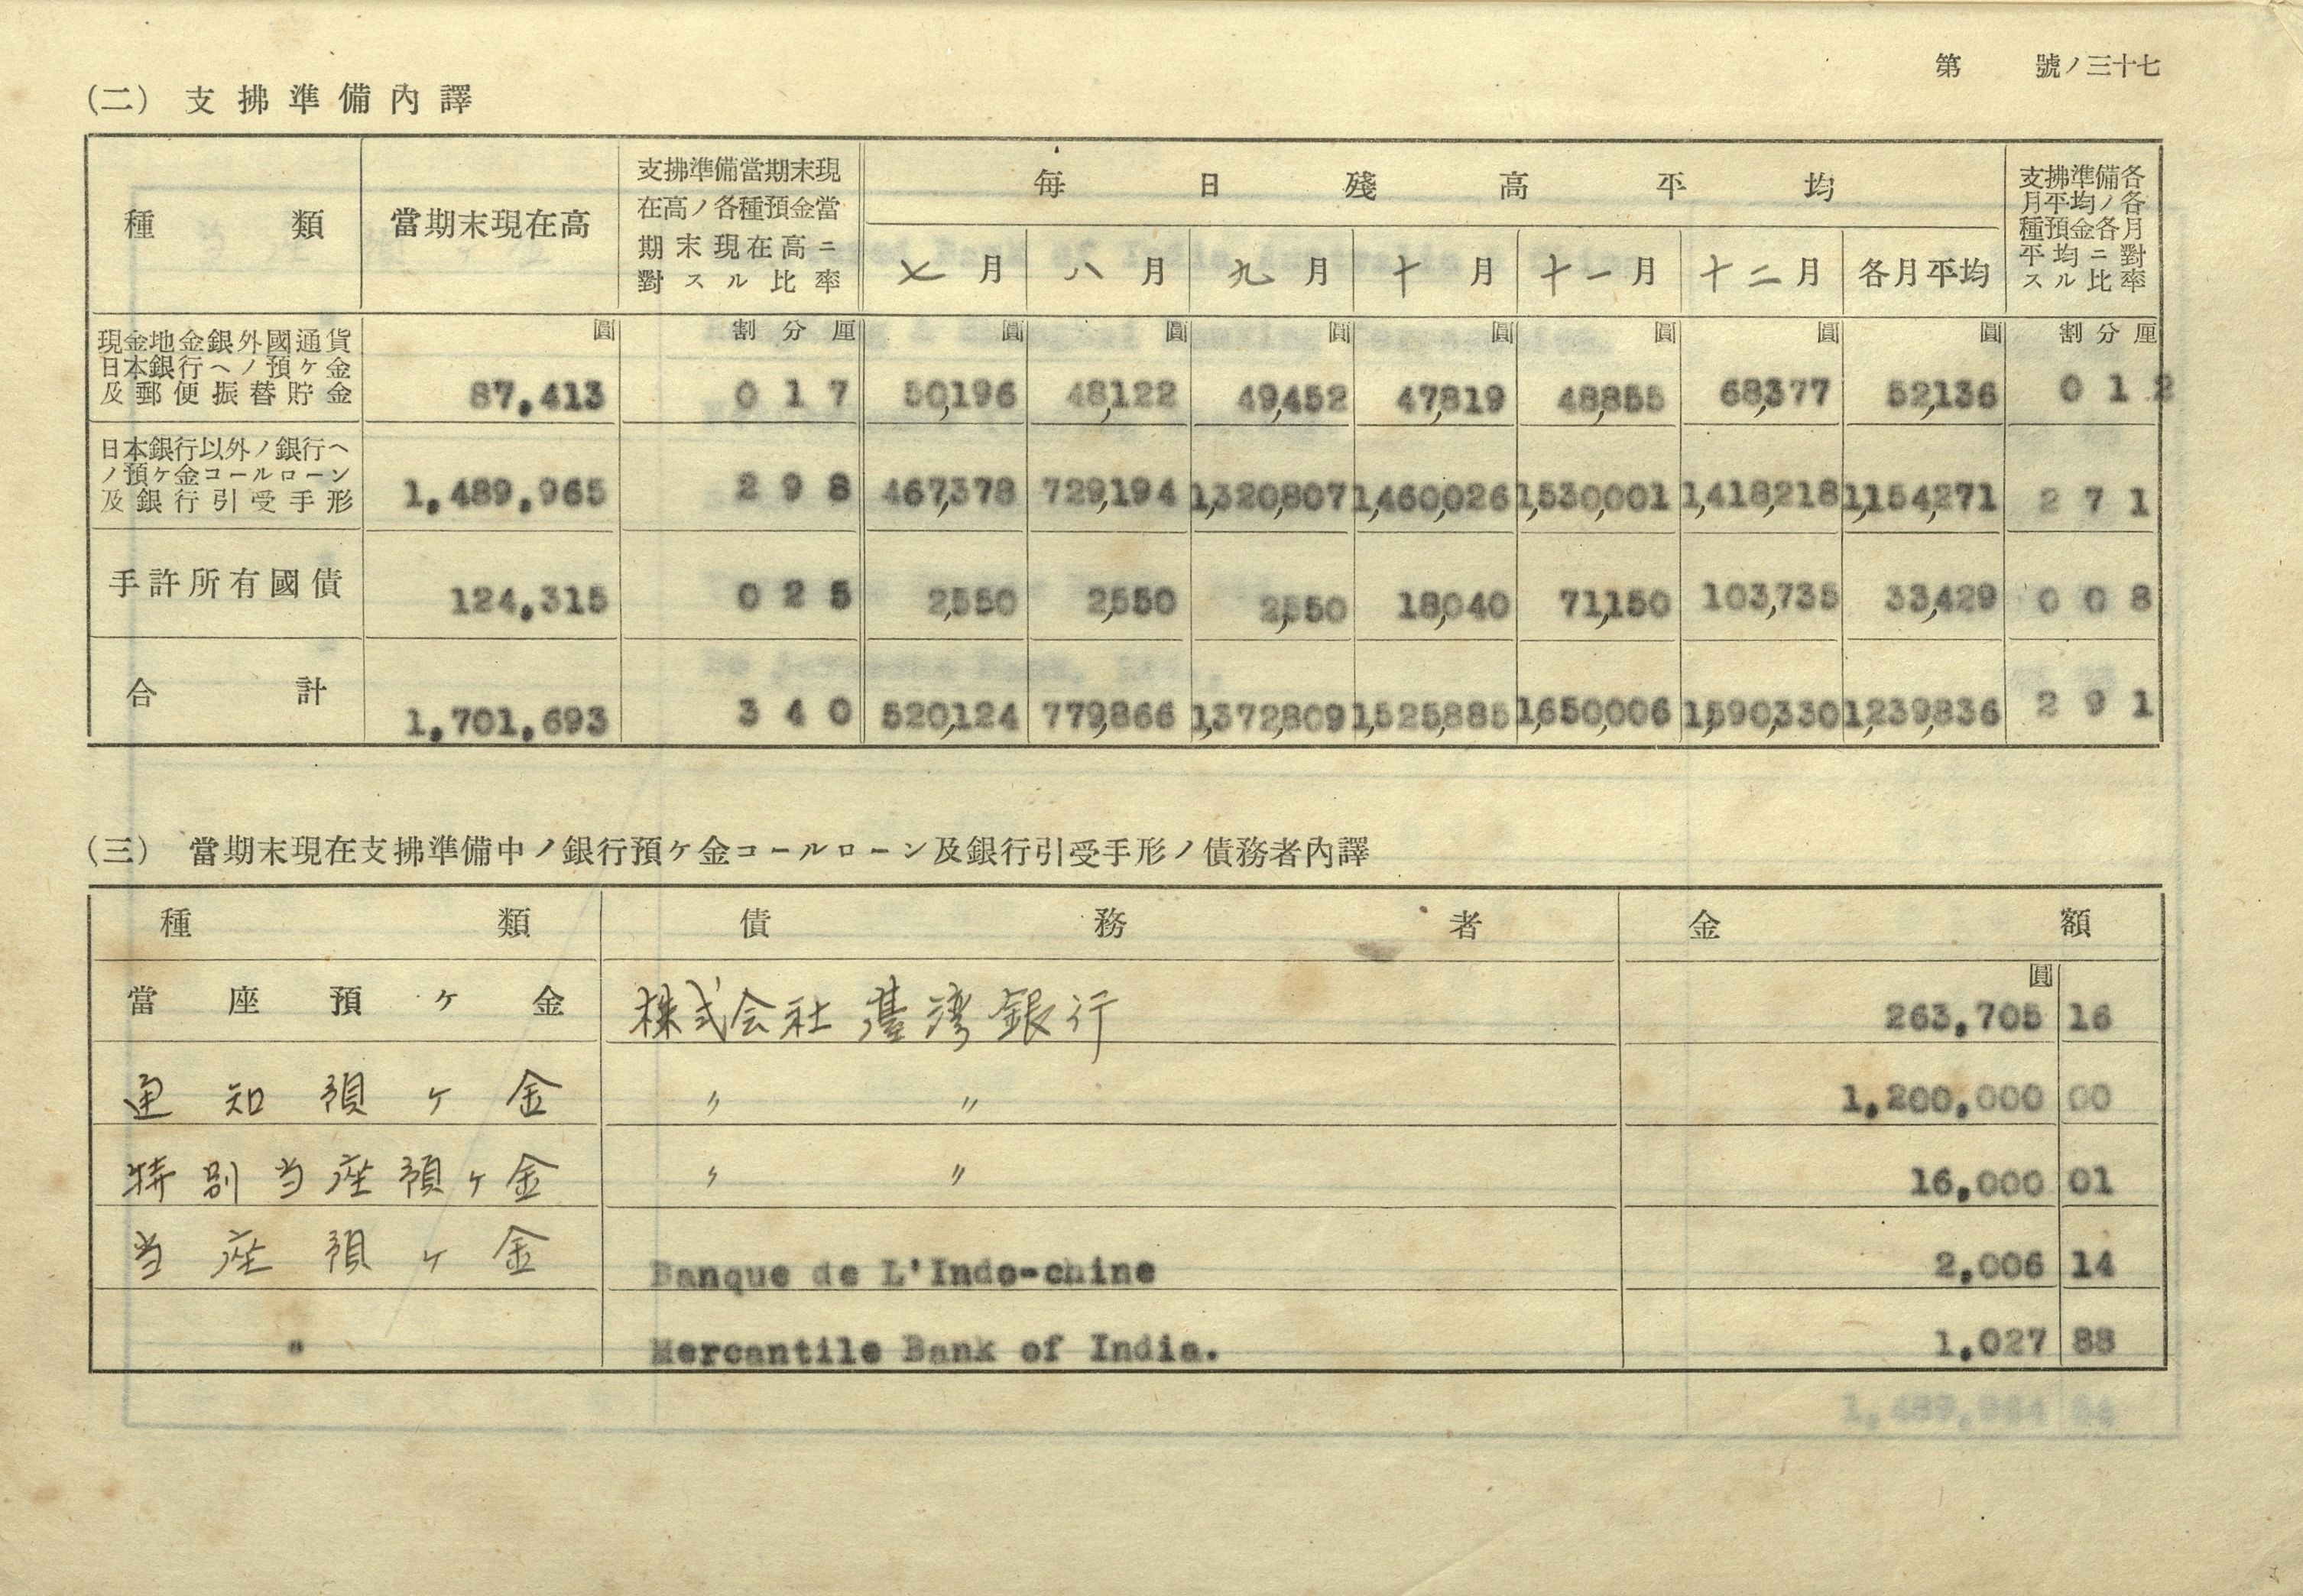 第 號ノ三十七
(二) 支拂準備內譯
種類 當期末現在高 支拂準備當期末現在高ノ各種預金當期末現在高ニ對スル比率 每日殘高平均 支拂準備各月平均ノ各種預金各月平均ニ對スル比率
七月 八月 九月 十月 十一月 十二月 各月平均
圓 割分厘 圓 圓 圓 圓 圓 圓 圓 割分厘
現金地金銀外國通貨
日本銀行ヘノ預ヶ金
及郵便振替貯金 87,413 0 1 7 50,196 48,122 49,452 47,819 48,855 68,377 52,136 0 1 2
日本銀行以外ノ銀行ヘ
ノ預ヶ金コールローン
及銀行引受手形 1,489,965 2 9 8 467,378 729,194 1,320,807 1,460,026 1,530,001 1,418,218 1,154,271 2 7 1
手許所有國債 124,315 0 2 5 2,550 2,550 2,550 18,040 71,150 103,735 33,429 0 0 8
合計 1,701,693 3 4 0 520,124 779,866 1,372,809 1,525,885 1,650,006 1,590,330 1,239,836 2 9 1
(三) 當期末現在支拂準備中ノ銀行預ヶ金コールローン及銀行引受手形ノ債務者內譯
種類 債務者 金額
圓
當座預ヶ金 株式会社臺湾銀行 263,705 16
通知預ヶ金 〃 〃 1,200,000 00
特別当座預ヶ金 〃 〃 16,000 01
当座預ヶ金 Banque de L'Indo-chine 2,006 14
" Mercantile Bank of India. 1,027 88